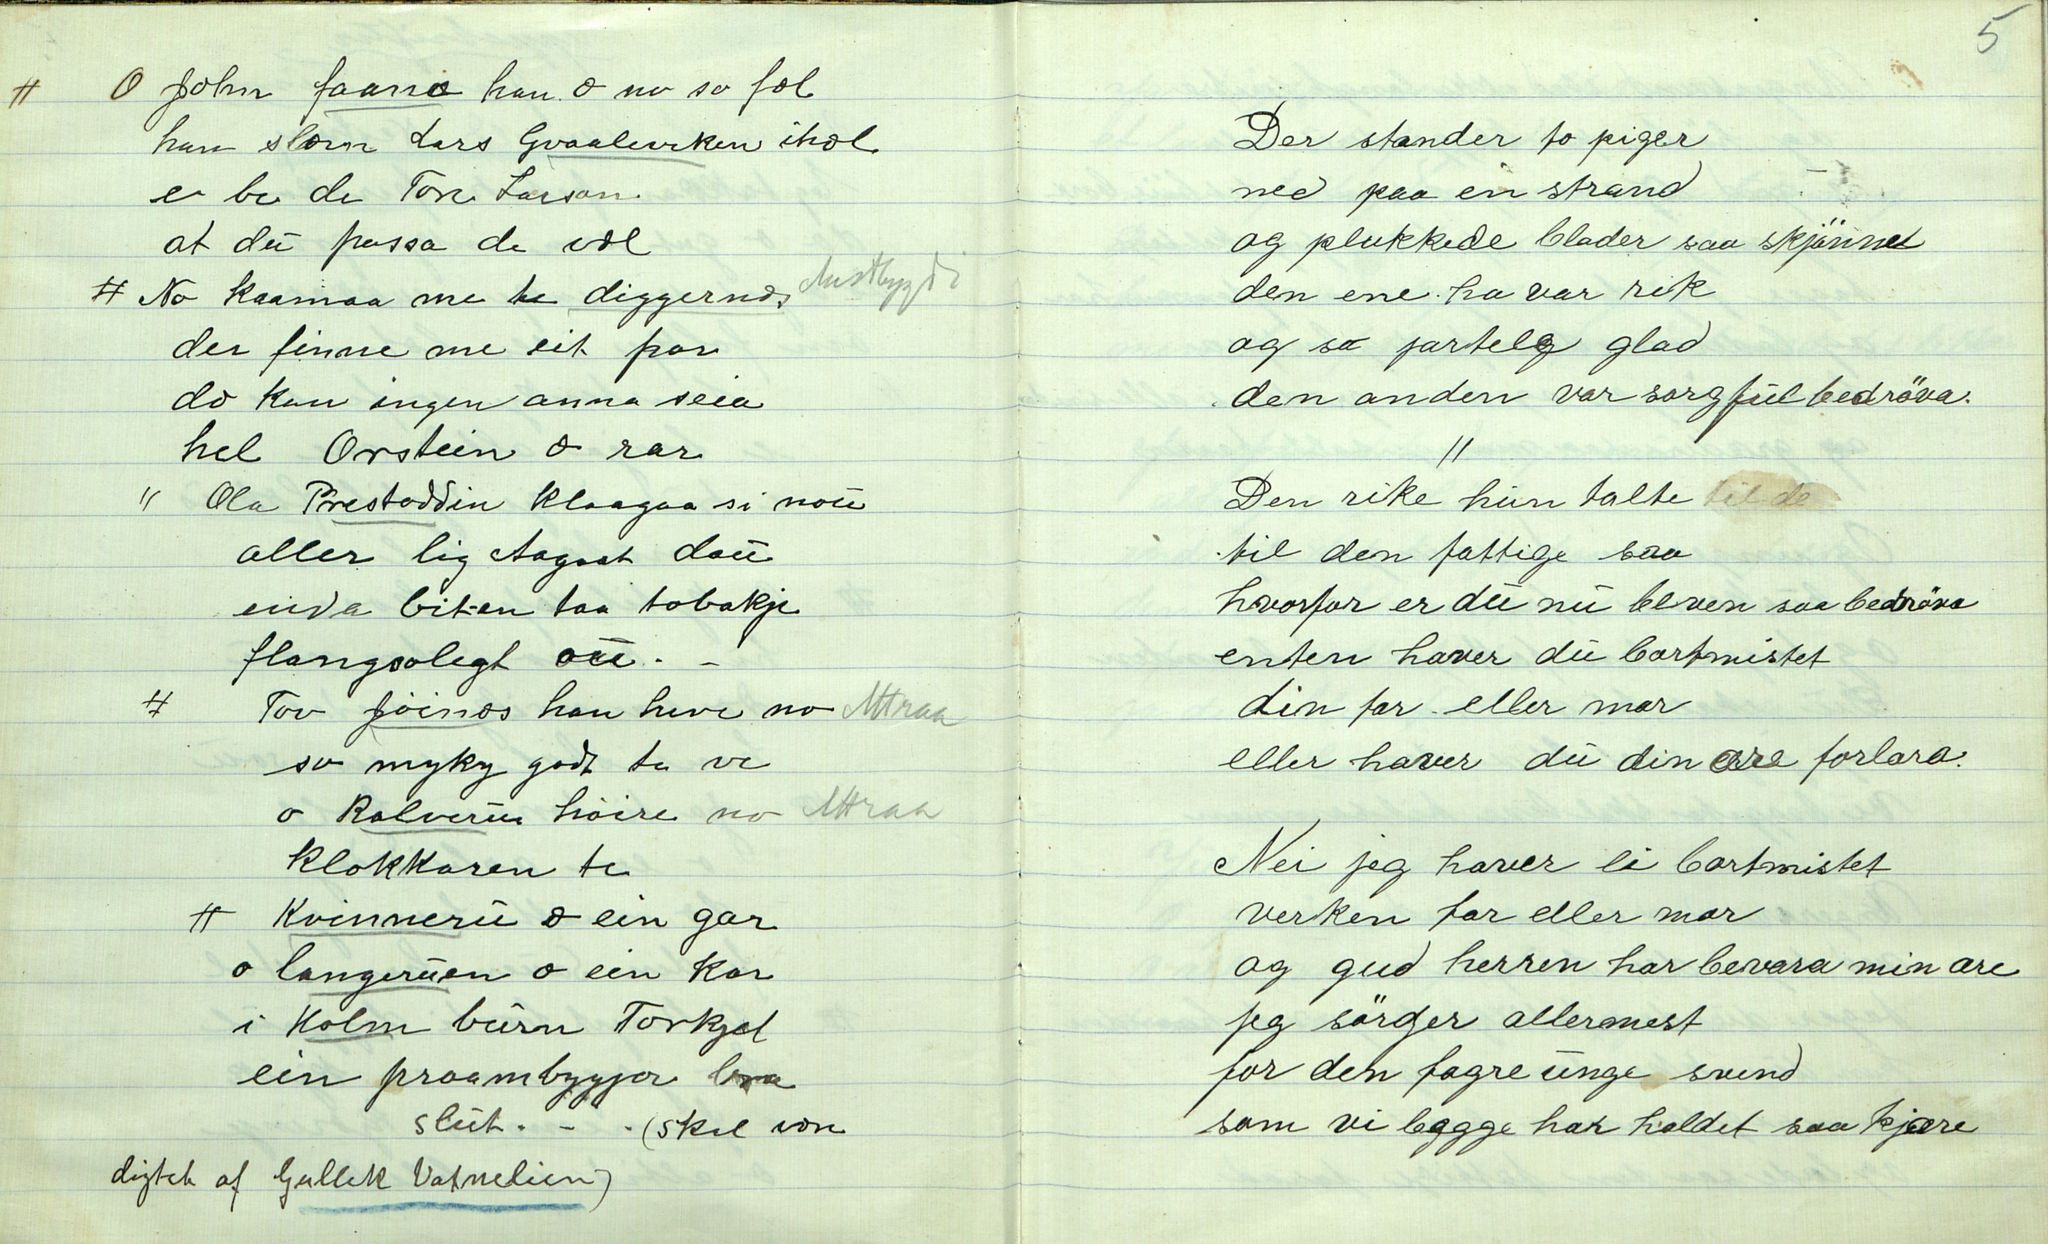 # O John faano han æ no so fæl
han slæm Lars Gvaaleviken ihæl
e be de Tore Larson
at dū passa de væl
# No kaamaa me te diggernæs Austbygdi
der finne me eit par
do kan ingen anna seia
hel Orstein æ rar
" Ola Prestoddin klaagaa si noū
aller lig Aagaat doū
enda biten taa tobakje
flangsolegt oū. -
# Tov Jöinos han heve no Attraa
so myky godt te ve
o Kalverūe höire no Attraa
klokkaren te
# Kvinnerū æ ein gar
o langerūen o ein kar
i Holm būrn Torkjel
ein praambyggjer bra
slūt. - . (skal væra
digtet af Gullek Vatnelien)
5
Der stander to piger
ned paa en strand
og plukkede blader saa skjönnet
den ene ho var rik
og so jartelg glad
den anden var sorgfūl bedröva.
"
Den rike hūn talte til de
til den fattige saa
hvorfor er dū nū bleven saa bedröva
enten haver dū bortmistet
din far eller mor
eller haver dū din ære forlora.
Nei jeg haver ei bortmistet
verken far eller mor
og gud herren har bevara min ære
jeg sörger allermest
for den fagre ūnge svend
som vi begge har holdet saa kjære